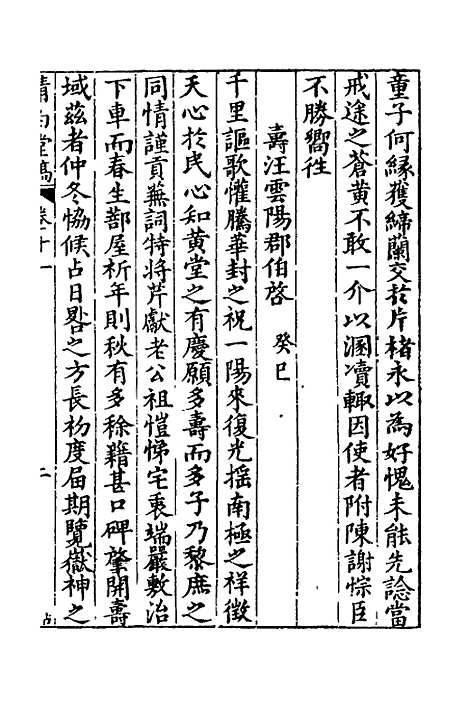 童子何緣獲締蘭交於片楮永以為好愧未能先諗當
戒途之蒼黃不敢一介以溷凟輙因使者附陳謝悰臣
不勝嚮徃
壽汪雲陽郡伯啓 癸巳
千里謳歌懽騰華封之祝一陽來復光揺南極之祥徵
天心於民心知黄堂之有慶願多壽而多子乃黎庶之
同情謹貢蕪詞特將芹獻老公祖愷悌宅衷端嚴敷治
下車而春生蔀屋祈年則秋有多稌籍甚口碑肇開壽
域茲者仲冬恊候占日晷之方長初度届期覽嶽神之
卷十一
二